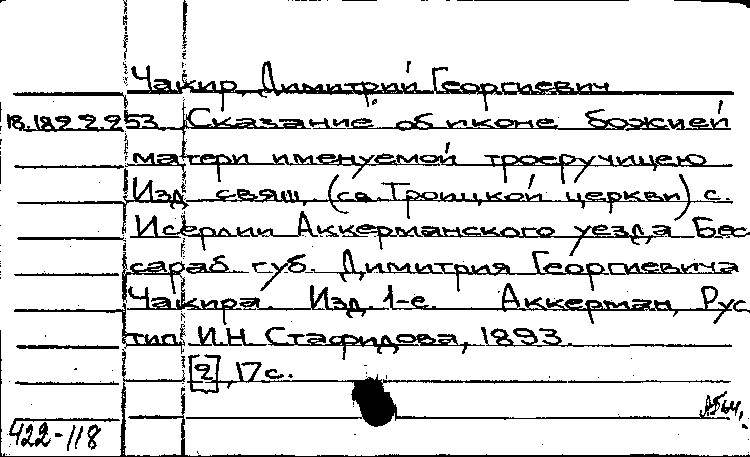 Чакир, Димитрий Георгиевич
18.182.2.253. Сказание об иконе божией
матери именуемой троеручицею
Изд. свящ. (св. Троицкой церкви) с.
Исерлии Аккерманского уезда Бес-
сараб. губ. Димитрия Георгиевича
Чакира. Изд. 1-е. Аккерман, Рус.
тип. И.Н. Стафидова, 1893.
[2], 17 с.
422-118